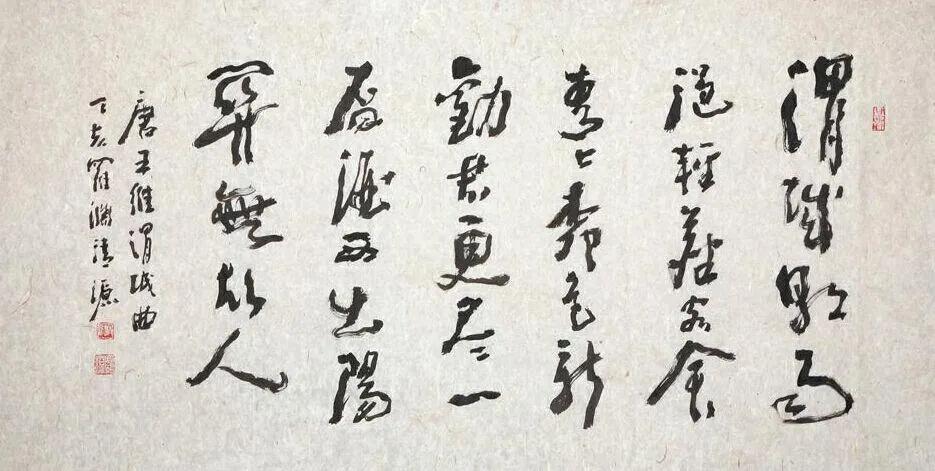 渭城朝雨
浥輕塵客舍
青々柳色新
勸君更尽一
盃酒西出陽
關無故人
唐王維渭城曲
丁亥